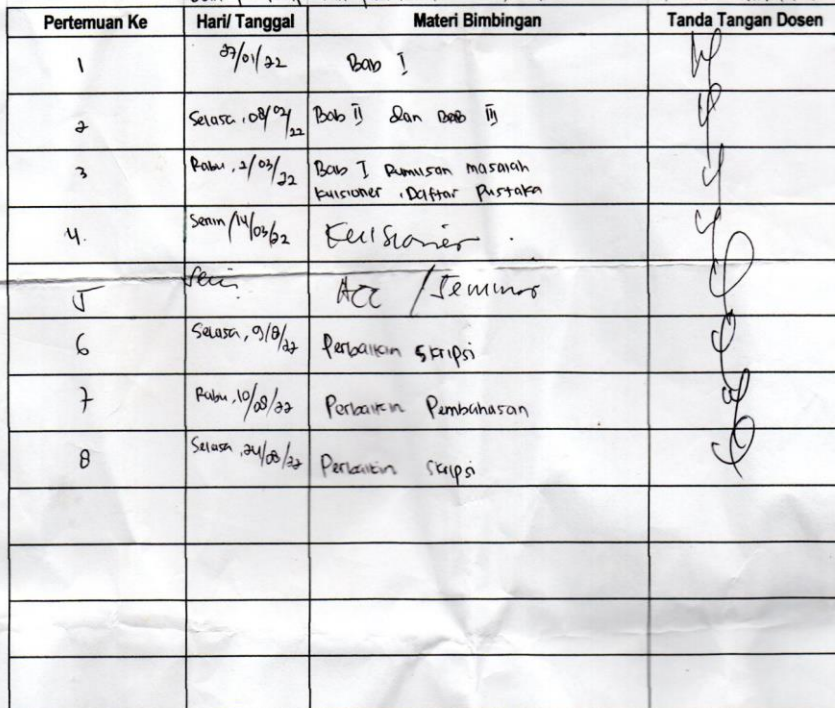 Pertemuan Ke Hari/ Tanggal Materi Bimbingan Tanda Tangan Dosen
1 27/01/22 Bab I
2 Selasa, 08/02/22 Bab II dan Bab III
3 Rabu, 2/03/22 Bab I Rumusan masalah
Kuisioner, Daftar Pustaka
4. Senin/14/03/22 Kuisioner.
5 ACC / Seminar
6 Selasa, 9/8/22 Perbaikan Skripsi
7 Rabu, 10/08/22 Perbaikan Pembahasan
8 Selasa, 24/08/22 Perbaikan Skripsi